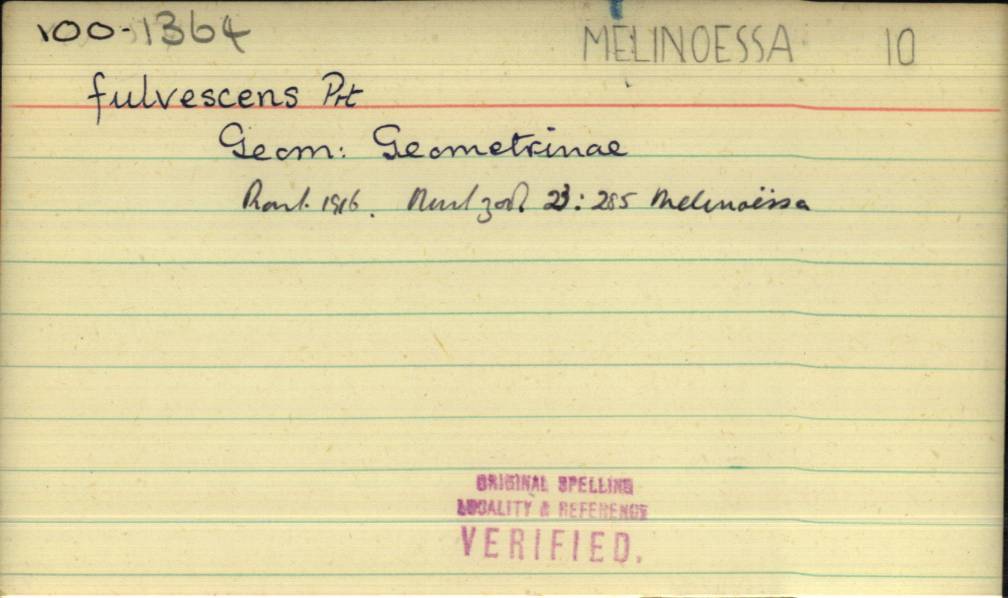 100-1364 MELINOESSA 10
fulvescens Prt
Geom: Geometrinae
Prout. 1916. Novit zool 23: 285 Melinoëssa
ORIGINAL SPELLING
LOCALITY & REFERENCE
VERIFIED.